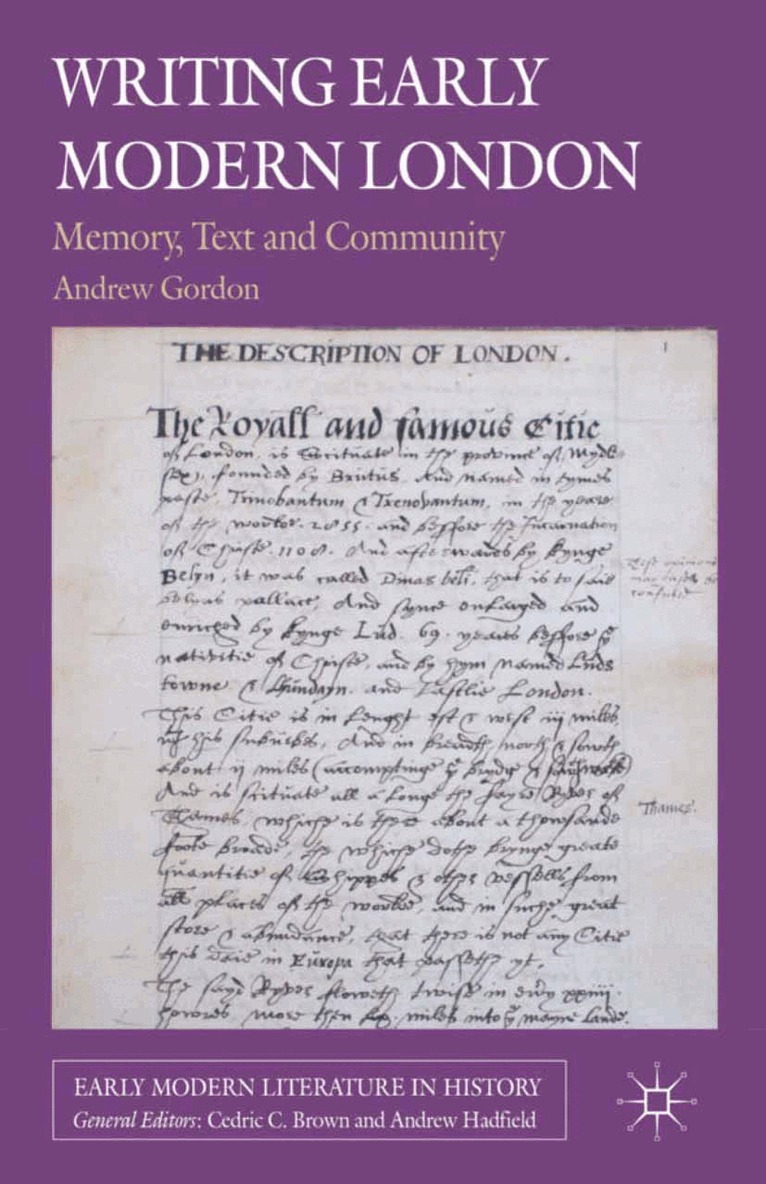 WRITING EARLY
MODERN LONDON
Memory, Text and Community
Andrew Gordon
THE DESCRIPTION OF LONDON.
1
The Royall and famous Citie
of London, is scituate in the province of Mydle
sex, founded by Brutus. And named in tymes
paste, Trinobantum & Trenovantum, in the yeare
of the worlde. 2855. and beffore the Incarnation
of Christe. 1108. And afterwardes by kynge
Belyn, it was called Dinas beli, that is to saie
belyns pallace, And synce enlarged and
enriched by kynge Lud. 69. yeares beffore ye
nativitie of Christe, and by hym named Luds
towne & Lhundayn. and Lastlie London.
This Citie is in Lenght est & west iij miles
his suburbes, And in breadth north & sowth
about ij miles (accomptinge ye brydge & southwarke)
And is scituate all a longe the fayre Ryver of
Thames, which is there about a thousande
foote broade, the which dothe brynge greate
quantitie of Shippes & other vessells from
all places of the worlde, and in suche great
store & abundance, that there is not any Citie
this daie in Europa that passethe yt.
The sayd Ryver floweth twise in every xxiiij
howres more then lx. miles into ye mayne lande.
Thames.
EARLY MODERN LITERATURE IN HISTORY
General Editors: Cedric C. Brown and Andrew Hadfield